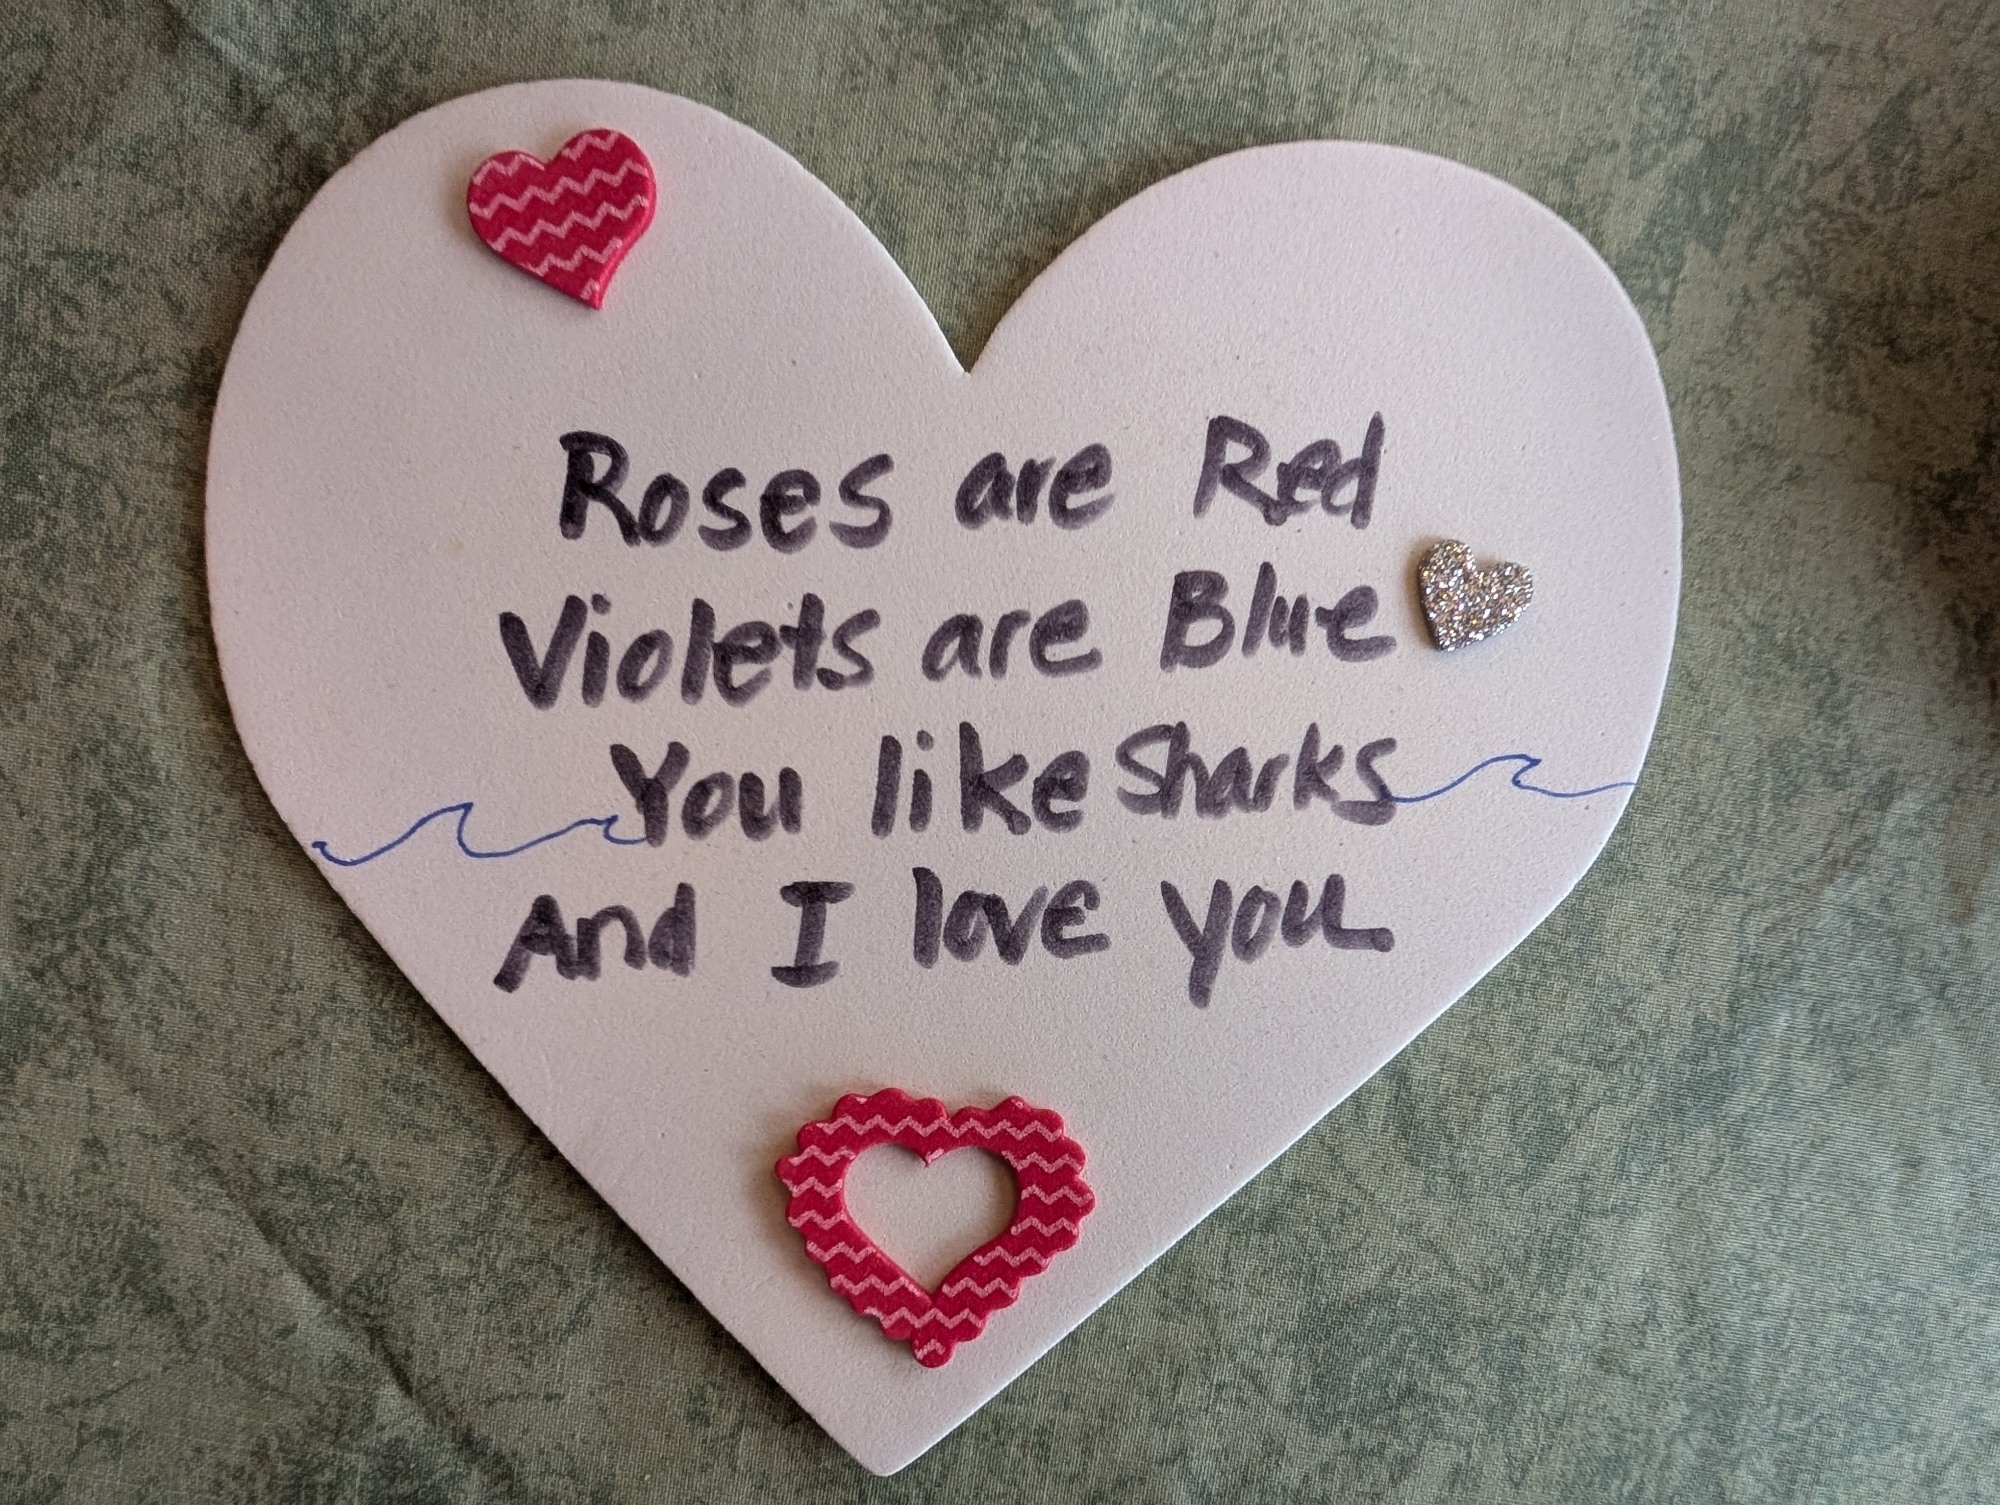 Roses are Red
Violets are Blue
You like Sharks
And I love you